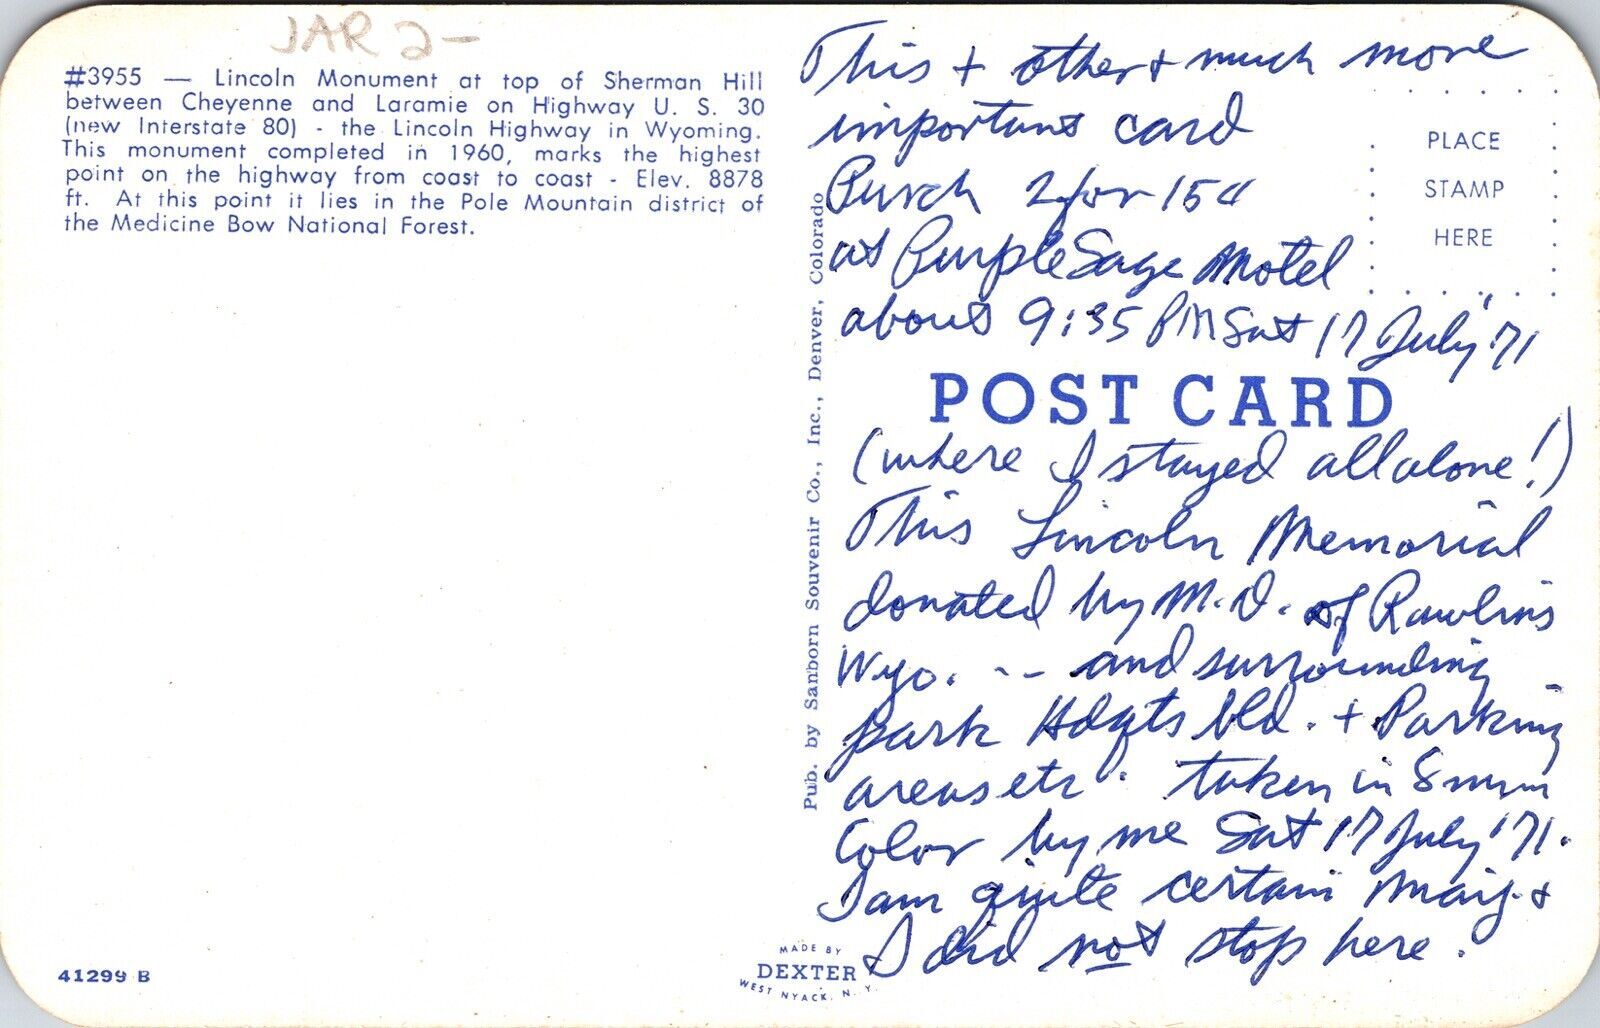 JAR 2-
#3955 — Lincoln Monument at top of Sherman Hill
between Cheyenne and Laramie on Highway U. S. 30
(new Interstate 80) - the Lincoln Highway in Wyoming.
This monument completed in 1960, marks the highest
point on the highway from coast to coast - Elev. 8878
ft. At this point it lies in the Pole Mountain district of
the Medicine Bow National Forest.
41299 B
Pub. by Sanborn Souvenir Co., Inc., Denver, Colorado
MADE BY
DEXTER
WEST NYACK, N. Y.
PLACE
STAMP
HERE
This + other + much more
important card
Purch 2 for 15¢
at Purple Sage Motel
about 9:35 PM Sat 17 July '71
POST CARD
(where I stayed all alone!)
This Lincoln Memorial
donated by M.D. of Rawlins
Wyo. -- and surrounding
park Hdqts bld. + Parking
areas etc. taken in 8mm
Color by me Sat 17 July '71.
I am quite certain Marg. +
I did not stop here.